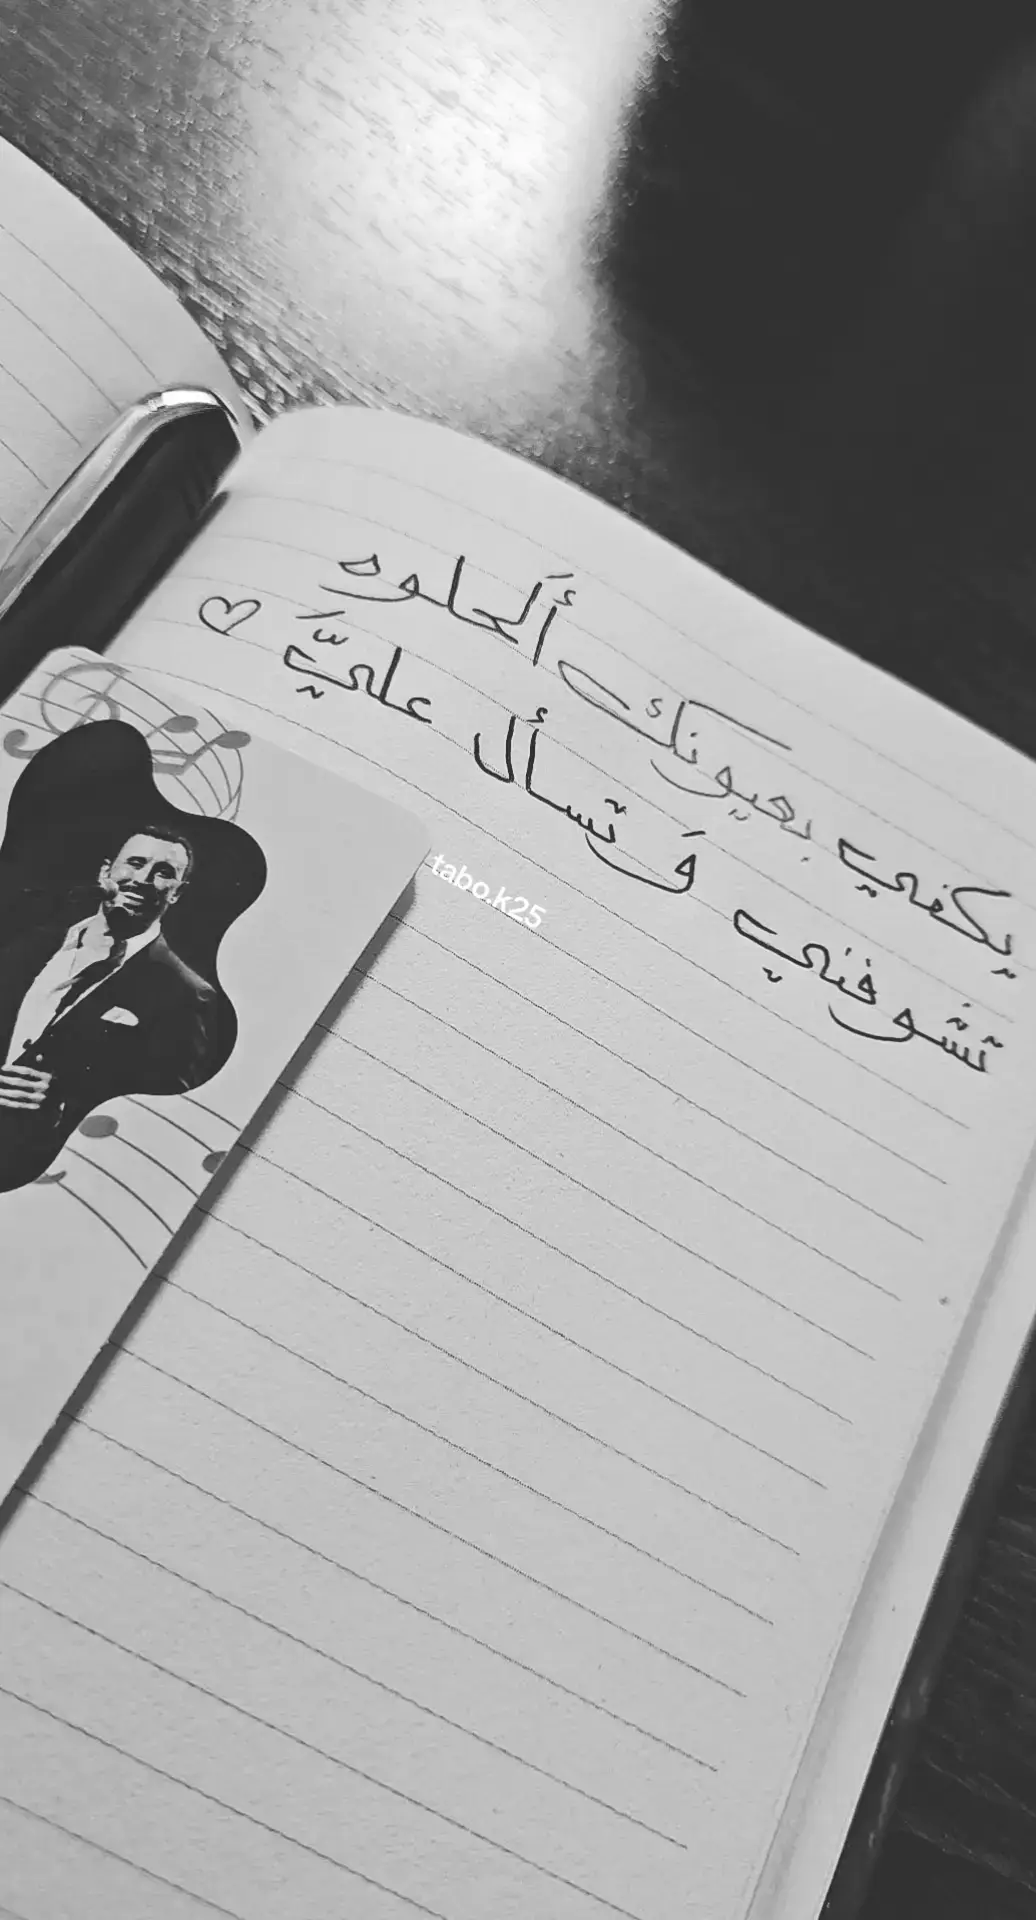 يكفي بعيونك ألحلوه
تشوفني وَ تسأل عليَّ ♡
tabo.k25